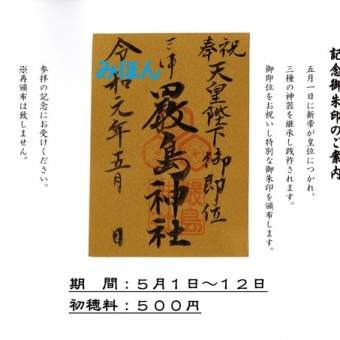 記念御朱印のご案内
五月一日に新帝が皇位につかれ、
三種の神器を継承し践祚されます。
御即位をお祝いし特別な御朱印を頒布します。
祝
奉
天皇陛下御即位
三津
厳島神社
令和元年五月 日
みほん
参拝の記念にお受けください。
※再頒布は致しません。
期　間：５月１日〜１２日
初穂料：５００円